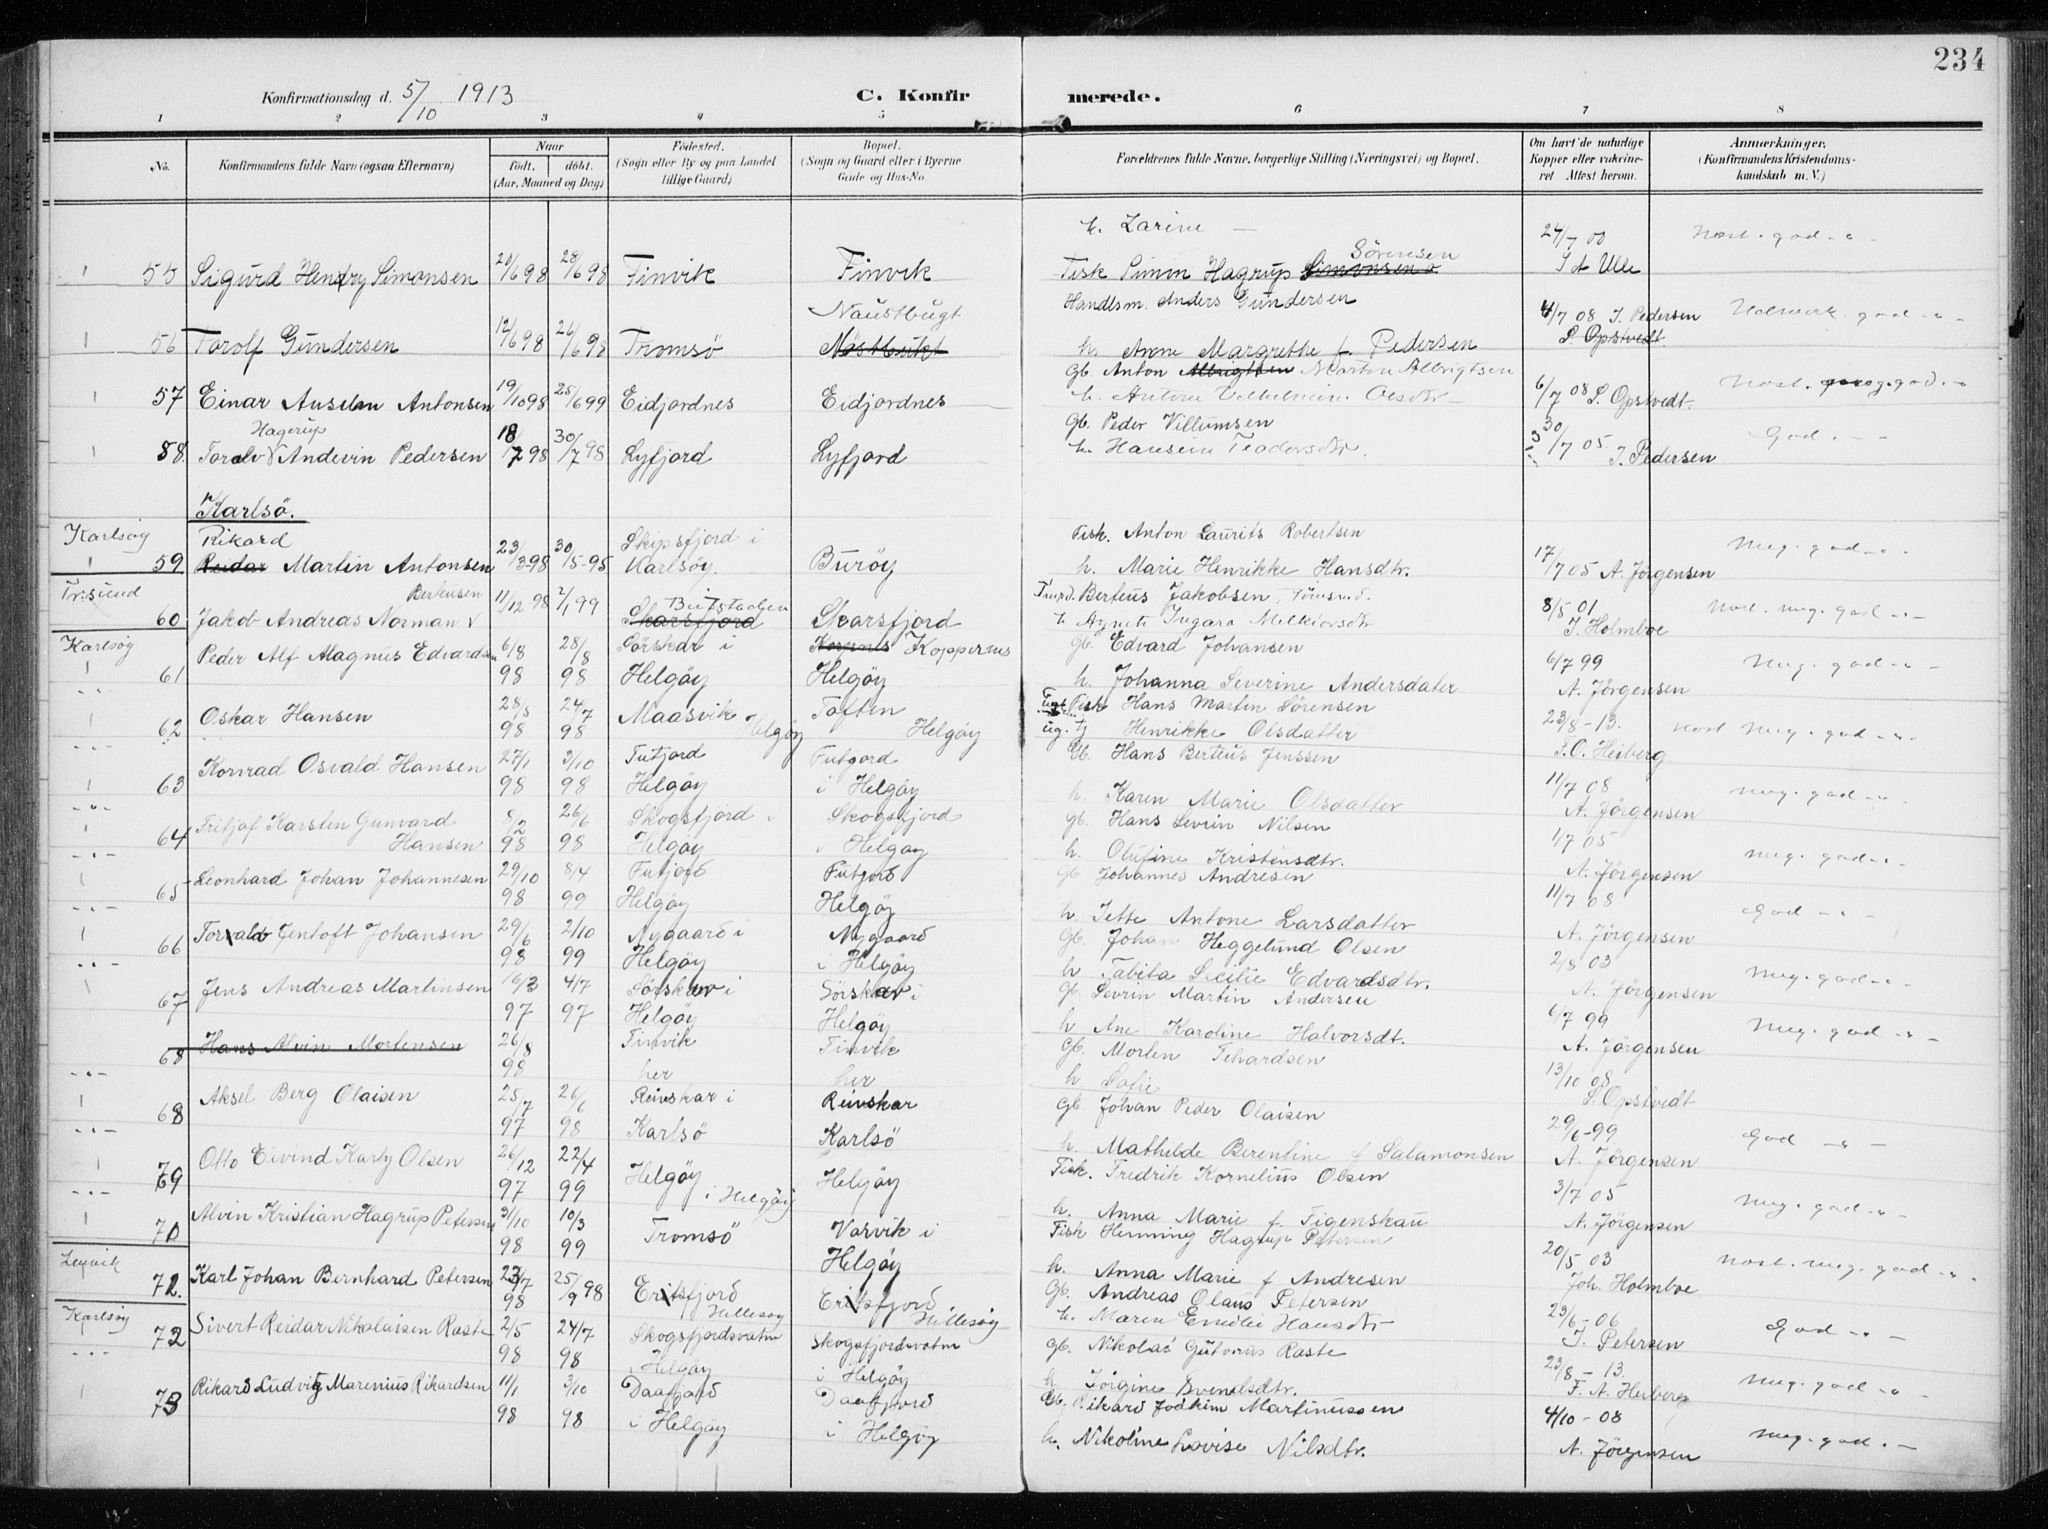 234
Konfirmationsdag d. 5/10 1913 C. Konfirmerede.
1 2 3 4 5 6 7 8
No. Konfirmandens fulde Navn (ogsaa Efternavn) Naar født. døbt. (Aar, Maaned og Dag) Fødested. (Sogn eller By og paa Landet tillige Gaard) Bopæl. (Sogn og Gaard eller i Byerne Gade og Hus-No. Forældrenes fulde Navne, borgerlige Stilling (Næringsvei) og Bopæl. Om havt de naturlige Kopper eller vakcineret Attest herom. Anmærkninger. (Konfirmandens Kristendomskundskab m. V.)
h. Zarine — 24/7 00
55 Sigurd Hendry Simonsen 20/6 98 28/6 98 Finvik Finvik Fisk Simon Hagrup Simonsen Sörensen
Naustbugt Handlsm. Anders Gundersen
56 Torolf Gundersen 12/6 98 26/6 98 Tromsö Nöstbukt h. Anne Margrethe f. Pedersen 4/7 08 J. Pedersen S. Opstvedt
57 Einar Anselm Antonsen 19/10 98 25/6 99 Eidjordnes Eidjordnes Gb. Anton Albrigtsen Martin Albrigtsen 6/7 08 S. Opstvedt.
Hagerup Gb. Peder Villumsen
58. Toralv Andevin Pedersen 18/7 98 30/7 98 Lyfjord Lyfjord h. Hansein Teodorsdtr. 30/7 05 J. Pedersen God
Karlsö.
Karlsöy Rikard Skipsfjord i Fisk. Anton Laurits Robertsen
59 Reidar Martin Antonsen 23/3-98 30/5-95 Karlsöy. Buröy h. Marie Henrikke Hansdtr. 17/7 05 A. Jörgensen Meg. god
Tr.sund Berteusen
60 Jakob Andreas Norman 11/12 98 2/1 99 Skarsfjord Skarsfjord Berteus Jakobsen h. Agnete Ingara Melkiorsdtr 8/5 01 J. Holmboe Nost. meg. god
Karlsöy
61 Peder Alf Magnus Edvardsen 6/8 98 28/8 98 Sörskar i Helgöy Koppernes Helgöy Gb. Edvard Johansen h. Johanna Severine Andersdater 6/7 99 A. Jörgensen Meg. god
62 Oskar Hansen 28/5 98 24/7 98 Maasvik Helgöy Toften Helgöy Fisk Hans Martin Sörensen ug. tj Henrikke Olsdatter 23/8-13. S.O. Heiberg Nost meg. god
63 Konrad Osvald Hansen 27/1 98 3/10 98 Futjord Helgöy Futgord i Helgöy Gb. Hans Berteus Jenssen h. Karen Marie Olsdatter 11/7 08 A. Jörgensen Meg. god
64 Fritjof Karsten Gunvard Hansen 8/2 98 26/6 98 Skogsfjord i Helgöy Skogsfjord i Helgöy Gb. Hans Sevrin Nilsen h. Olufine Kristensdtr. 1/7 05 A. Jörgensen Meg. god
65 Leonhard Johan Johannesen 29/10 98 8/4 99 Futjord Helgöy Futjord Helgöy Gb Johannes Andresen h. Jette Antone Larsdatter 11/7 08 A. Jörgensen God
66 Torvald Jentoft Johansen 29/6 98 2/10 99 Nygaard i Helgöy Nygaard i Helgöy Gb. Johan Heggelund Olsen h Tabita Secilie Edvardsdtr. 2/8 03 A. Jörgensen Meg. god
67 Jens Andreas Martinsen 16/3 97 4/7 97 Sörskar i Helgöy Sörskar i Helgöy Gb. Sevrin Martin Andersen h Ane Karoline Halvorsdt. 6/7 99 A. Jörgensen Meg. god
68 Hans Alvin Mortensen 26/8 98 Finvik her Finvik her Gb. Morten h Sofie 13/10 08 S. Opstvedt
68 Aksel Berg Olaisen 25/7 97 26/6 98 Reinskar i Karlsö Reinskar Karlsö Gb. Johan Peder Olaisen h. Mathilde Berentine f Salamonsen 29/6-99. A. Jörgensen God
79 Otto Eivind Karly Olsen 26/12 97 22/4 99 Helgöy Helgöy Fisk. Fredrik Kornelius Olsen h. Anna Marie f. Figenskau 3/7 05 A. Jörgensen Meg. god
70 Alvin Kristian Hagrup Petersen 31/10 98 10/3 99 i Helgöy Tromsö Varvik i Helgöy Fisk Henning Hagrup Petersen h. Anna Marie f Andresen 20/5 03 Joh. Holmboe Nost. meg. god
Lenvik
72. Karl Johan Bernhard Petersen 23/7 98 25/9 98 Ersfjord Hillesöy Ersfjord Hillesöy Gb. Andreas Olaus Petersen h. Maren Emilie Hansdtr 23/6-06 J. Petersen God
Karlsöy
72 Sivert Reidar Nikolaisen Raste 2/5 98 24/7 98 Skogsfjordsvatn i Helgöy Skogsfjordsvatn i Helgöy Gb. Nikolai Raste h Jörgine Svendsdtr. 23/8-13. F. A. Heiberg Meg. god
73 Rikard Ludvig Marenius Rikardsen 11/1 98 3/10 98 Daafjord i Helgöy Daafjord i Helgöy Gb. Rikard Joakim Martinussen h. Nikoline Lovise Nilsdtr. 4/10-08 A. Jörgensen Meg. god.